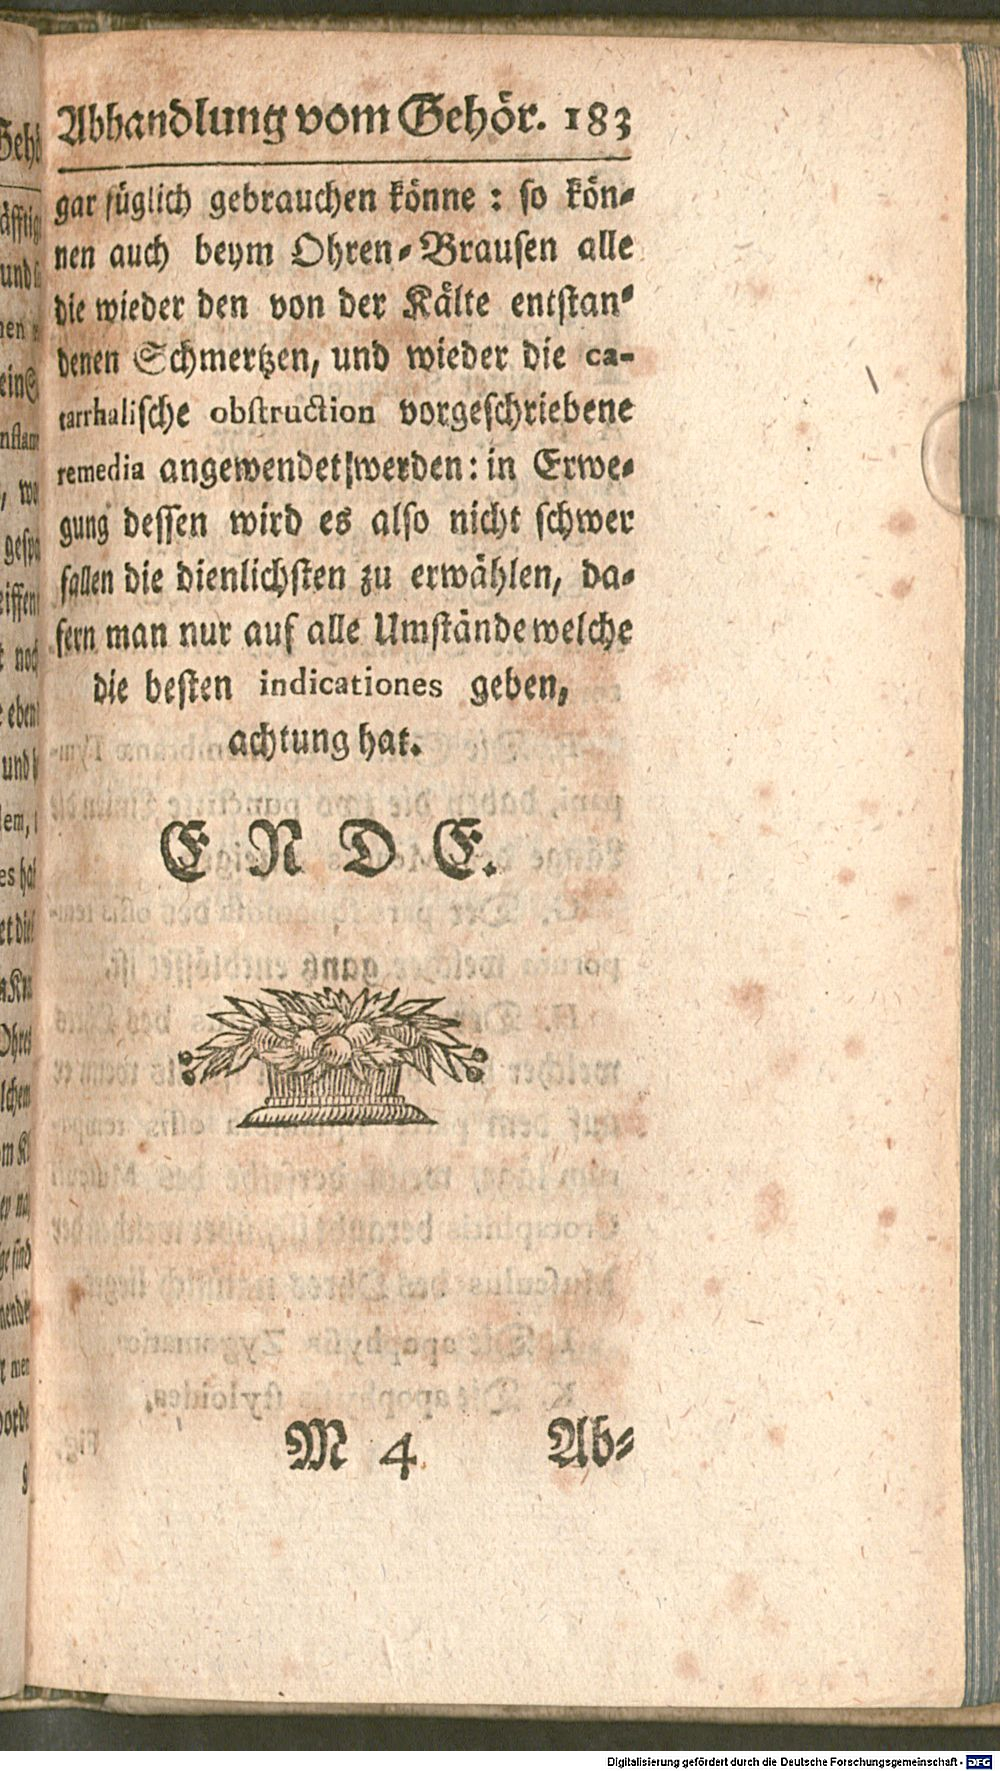 Abhandlung vom Gehör. 183
gar füglich gebrauchen könne : so kön-
nen auch beym Ohren-Brausen alle
die wieder den von der Kälte entstan-
denen Schmertzen, und wieder die ca-
tarrhalische obstruction vorgeschriebene
remedia angewendet werden: in Erwe-
gung dessen wird es also nicht schwer
fallen die dienlichsten zu erwählen, da-
fern man nur auf alle Umstände welche
die besten indicationes geben,
achtung hat.
ENDE.
M 4 Ab-
Digitalisierung gefördert durch die Deutsche Forschungsgemeinschaft - DFG